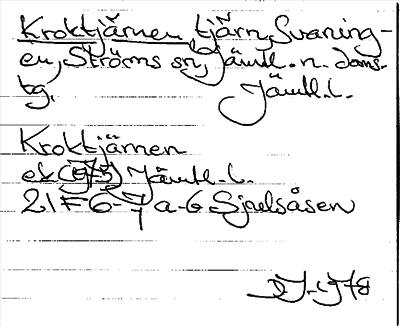 Krokt­järnen, tjärn, Svaning-
en, Ströms sn, Jämtl. n. doms-
tg. Jämtl. l.
Kroktjärnen
ek (1975) Jämtl. l.
21F 6-7 a-b Sjulsåsen
1978